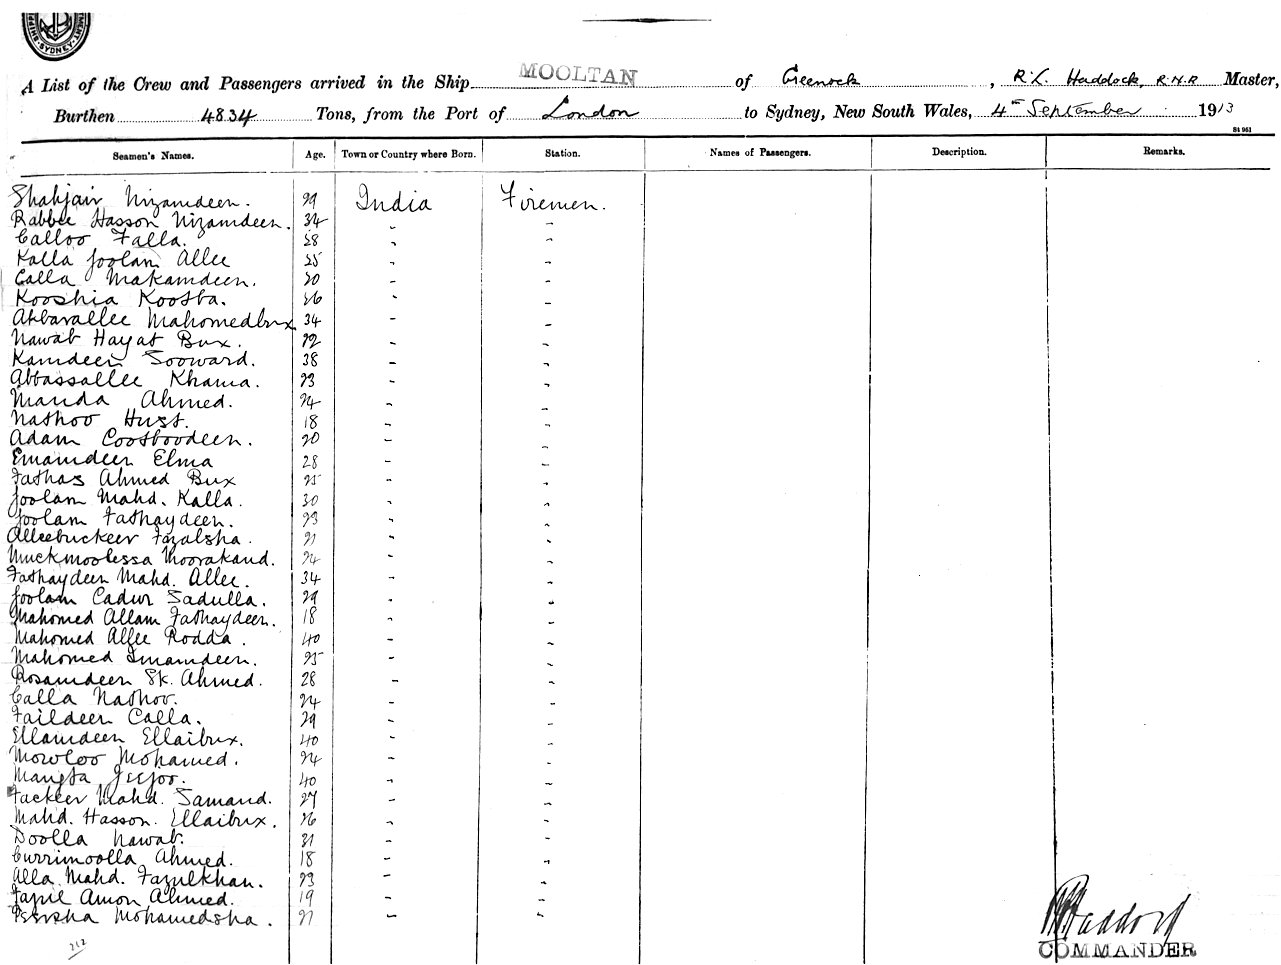 SYDNEY
A List of the Crew and Passengers arrived in the Ship MOOLTAN of Greenock, R.L. Haddock, R.N.R Master,
Burthen 4834 Tons, from the Port of London to Sydney, New South Wales, 4th September 1913
St 961
Seamen's Names. Age. Town or Country where Born. Station. Names of Passengers. Description. Remarks.
Shahjair Nizamdeen. 29 India Firemen.
Rabbee Hasson Nizamdeen. 34 " "
Calloo Falla. 28 " "
Kalla Joolam Allee 25 " "
Calla Makamdeen. 20 " "
Kooshia Kootba. 26 " "
Akbarallee Mahomedbux 34 " "
Nawab Hayat Bux. 22 " "
Kamdeen Sooward. 38 " "
Abbassallee Khama. 23 " "
Manda Ahmed. 24 " "
Nathoo Hust. 18 " "
Adam Cootboodeen. 20 " "
Emamdeen Elma 28 " "
Fathas Ahmed Bux 25 " "
Joolam Mahd. Kalla. 30 " "
Joolam Fathaydeen. 23 " "
Alleebuckeer Fazalsha. 21 " "
Muckmoolessa Moorakand. 24 " "
Fathaydeen Mahd. Allee. 34 " "
Joolam Cadur Sadulla. 29 " "
Mahomed Allam Fathaydeen. 18 " "
Mahomed Allee Rodda. 40 " "
Mahomed Imamdeen. 25 " "
Rosamdeen Sk. Ahmed. 28 " "
Calla Nathoo. 24 " "
Faildeen Calla. 29 " "
Ellamdeen Ellaibux. 40 " "
Mowloo Mohamed. 24 " "
Mangta Jeejoo. 40 " "
Fackeer Mahd. Samand. 27 " "
Mahd. Hasson. Ellaibux. 26 " "
Doolla Nawab. 21 " "
Currimoolla Ahmed. 18 " "
Alla Mahd. Fazulkhan. 23 " "
Fazil Amon Ahmed. 19 " "
Mohamedsha. 21 " "
212
Haddock
COMMANDER